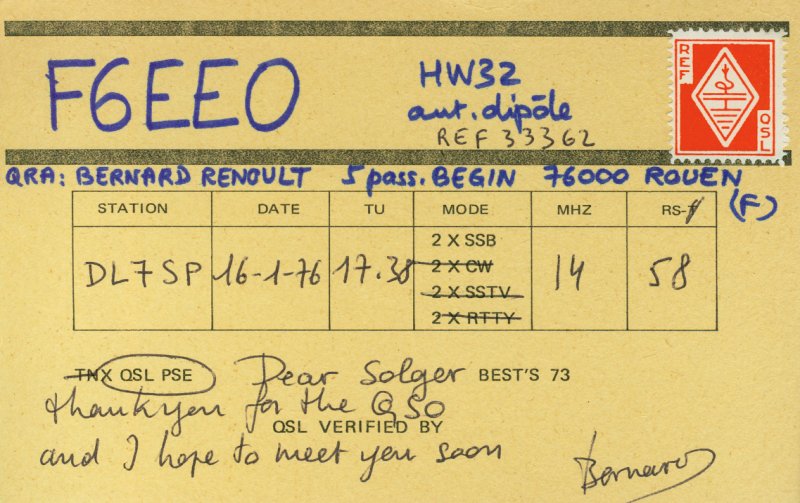 F6EEO
HW32
ant. dipôle
REF 33362
REF
QSL
QRA: BERNARD RENOULT 5 pass. BEGIN 76000 ROUEN
(F)
STATION DATE TU MODE MHZ RS-T
DL7SP 16-1-76 17.38 2 X SSB 14 58
2 X CW
2 X SSTV
2 X RTTY
TNX QSL PSE Dear Solger BEST'S 73
thankyou for the QSO
QSL VERIFIED BY
and I hope to meet you soon
Bernard